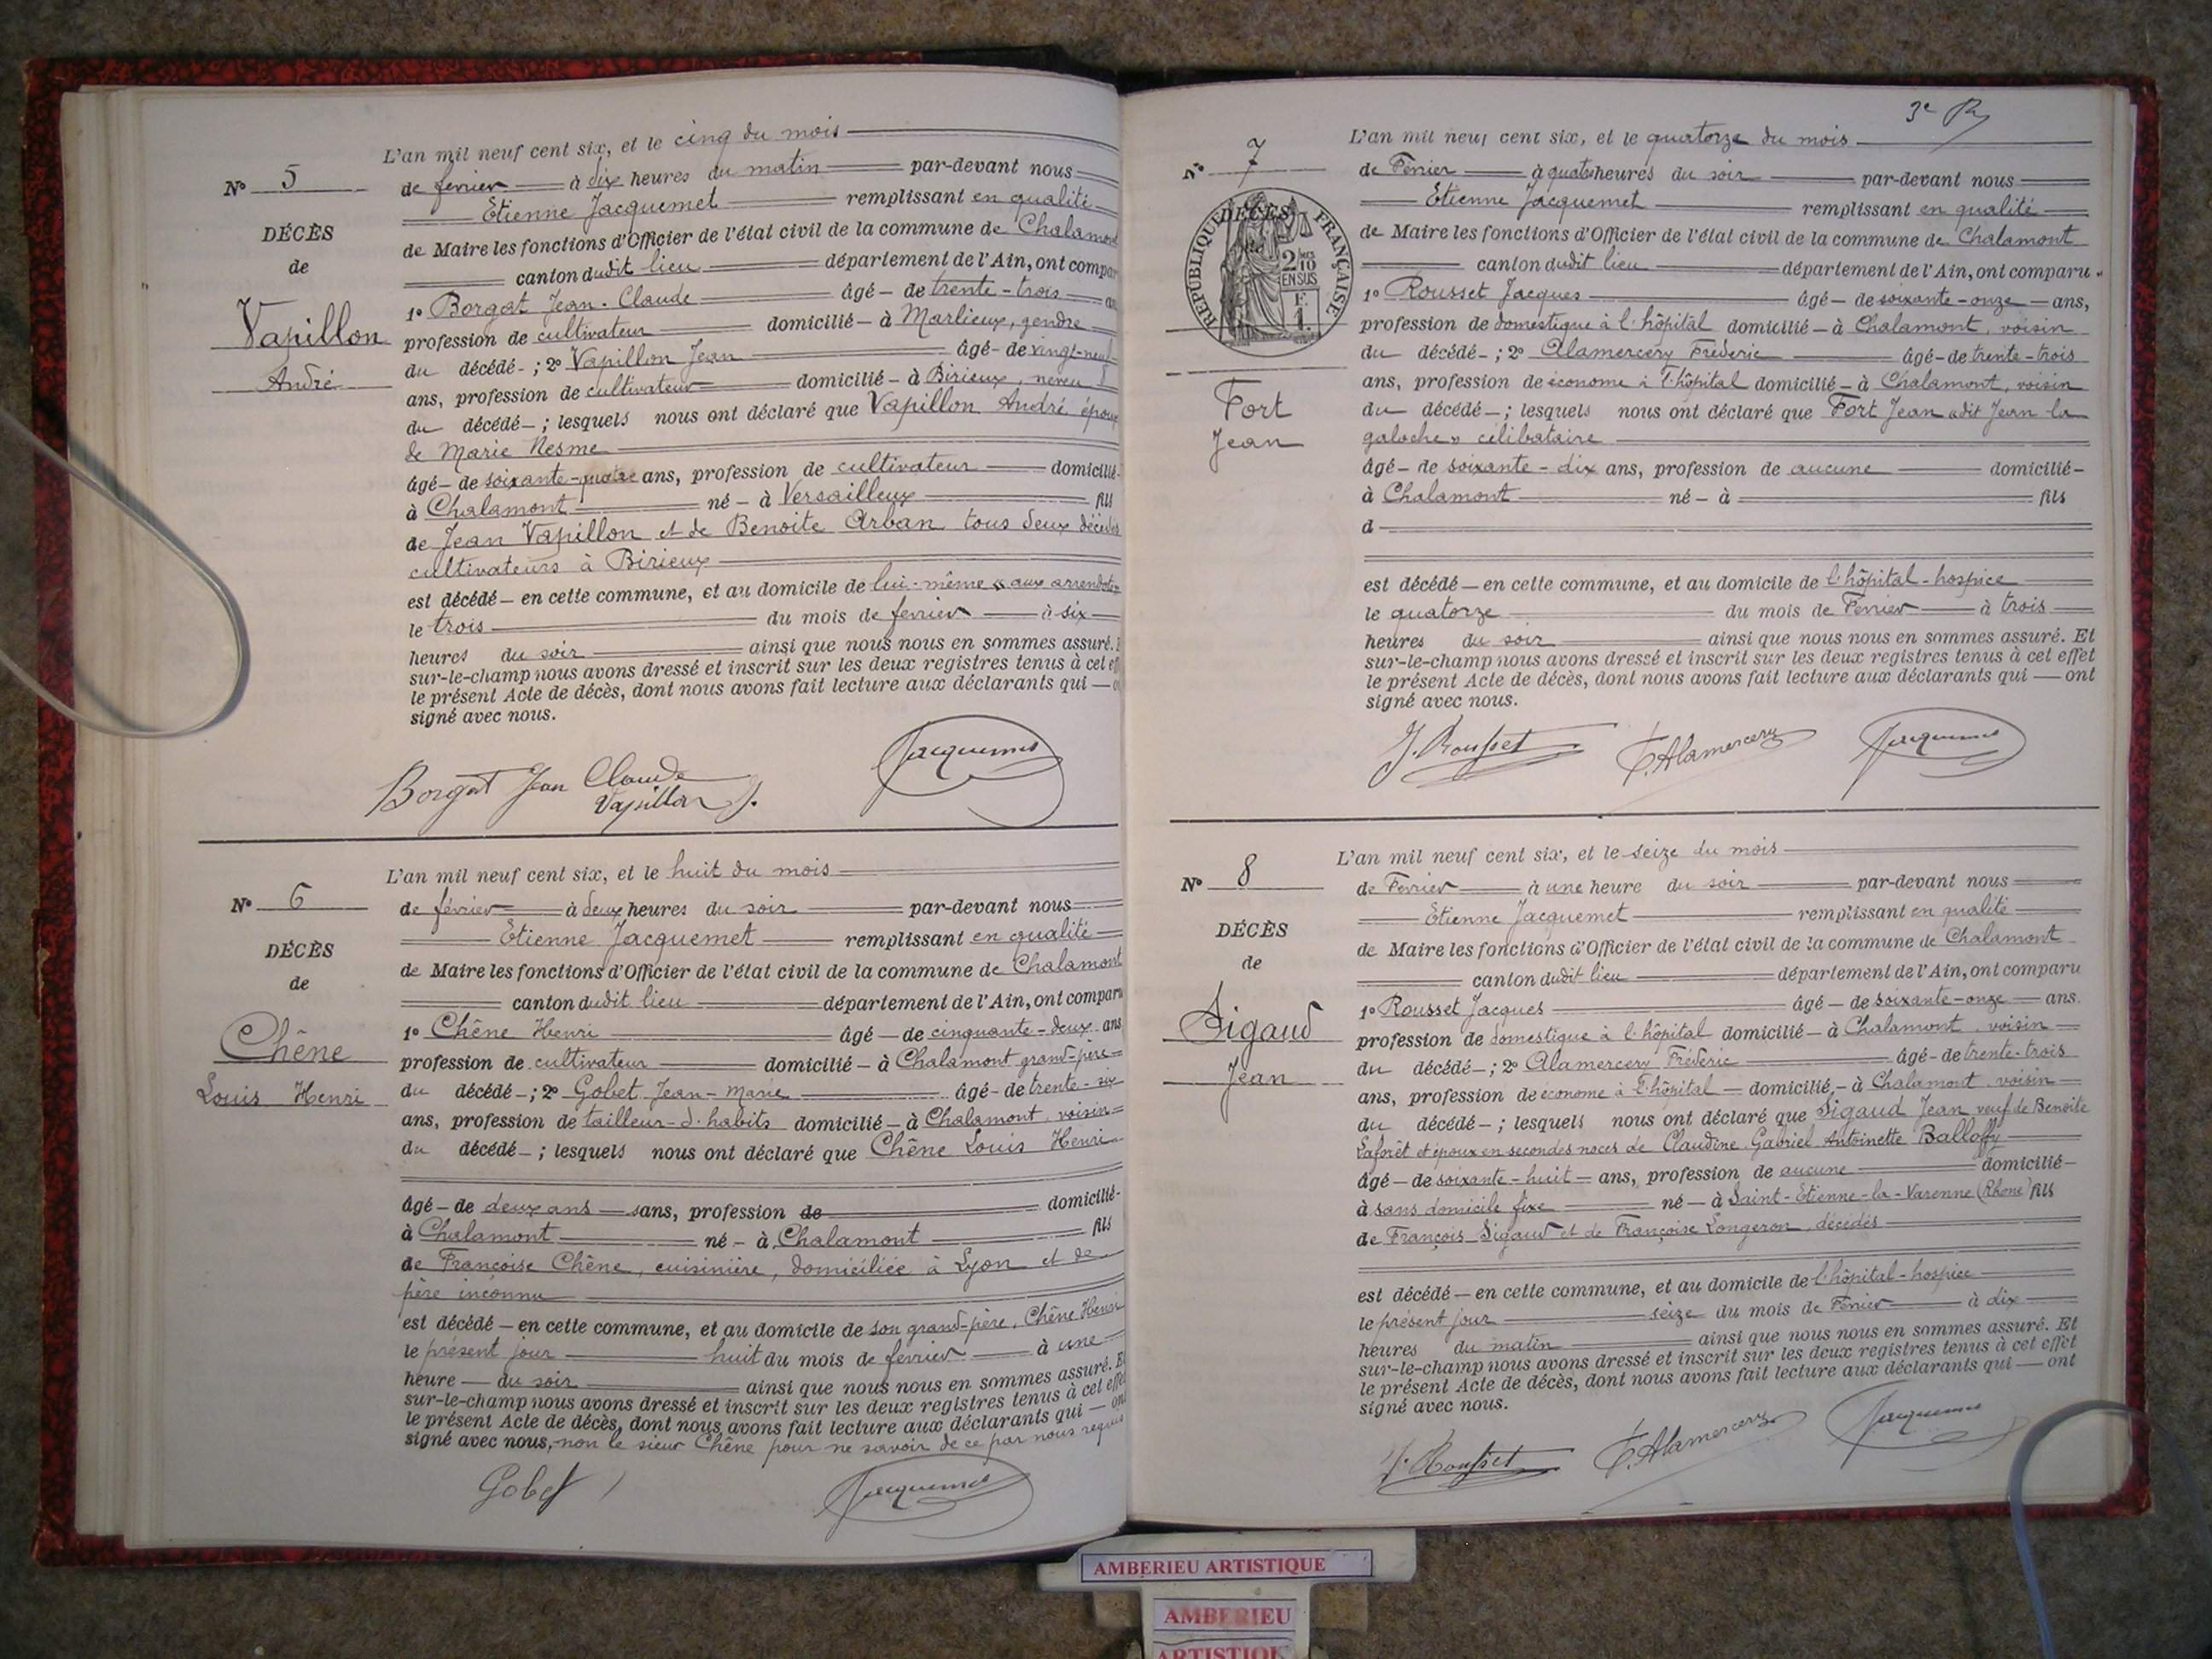 N° 5
DÉCÈS
de
Vapillon
André
L'an mil neuf cent six, et le cinq du mois
de février à dix heures du matin par-devant nous
Etienne Jacquemet remplissant en qualité
de Maire les fonctions d'Officier de l'état civil de la commune de Chalamont
canton dudit lieu département de l'Ain, ont compar
1° Borgat Jean-Claude âgé de trente-trois an
profession de cultivateur domicilié à Marlieux, gendre
du décédé ; 2° Vapillon Jean âgé de vingt-neuf
ans, profession de cultivateur domicilié à Birieux, neveu
du décédé ; lesquels nous ont déclaré que Vapillon André époux
de Marie Nesme
âgé de soixante-quatre ans, profession de cultivateur domicilié
à Chalamont né à Versailleux fils
de Jean Vapillon et de Benoite Arban tous deux décédés
cultivateurs à Birieux
est décédé en cette commune, et au domicile de lui-même aux
le trois du mois de février à six
heures du soir ainsi que nous nous en sommes assuré. E
sur-le-champ nous avons dressé et inscrit sur les deux registres tenus à cet eff
le présent Acte de décès, dont nous avons fait lecture aux déclarants qui o
signé avec nous.
Borgat Jean Claude Jacquemet
Vapillon J.
N° 6
DÉCÈS
de
Chêne
Louis Henri
L'an mil neuf cent six, et le huit du mois
de février à deux heures du soir par-devant nous
Etienne Jacquemet remplissant en qualité
de Maire les fonctions d'Officier de l'état civil de la commune de Chalamont
canton dudit lieu département de l'Ain, ont comparu
1° Chêne Henri âgé de cinquante-deux ans
profession de cultivateur domicilié à Chalamont grand-père
du décédé ; 2° Gobet Jean-Marie âgé de trente-six
ans, profession de tailleur-d'habits domicilié à Chalamont, voisin
du décédé ; lesquels nous ont déclaré que Chêne Louis Henri
âgé de deux ans sans, profession de domicilié
à Chalamont né à Chalamont fils
de Françoise Chêne, cuisinière, domiciliée à Lyon et de
père inconnu
est décédé en cette commune, et au domicile de son grand-père, Chêne Henri
le présent jour huit du mois de février à une
heure du soir ainsi que nous nous en sommes assuré. E
sur-le-champ nous avons dressé et inscrit sur les deux registres tenus à cet effe
le présent Acte de décès, dont nous avons fait lecture aux déclarants qui on
signé avec nous, non le sieur Chêne pour ne savoir de ce par nous requis
Gobet Jacquemet
3e
N° 7
RÉPUBLIQUE FRANÇAISE
DÉCÈS
2/10 EN SUS
F. 1.
Fort
Jean
L'an mil neuf cent six, et le quatorze du mois
de Février à quatre heures du soir par-devant nous
Etienne Jacquemet remplissant en qualité
de Maire les fonctions d'Officier de l'état civil de la commune de Chalamont
canton dudit lieu département de l'Ain, ont comparu
1° Rousset Jacques âgé de soixante-onze ans,
profession de domestique à l'hôpital domicilié à Chalamont, voisin
du décédé ; 2° Alamercery Frédéric âgé de trente-trois
ans, profession de économe à l'hôpital domicilié à Chalamont, voisin
du décédé ; lesquels nous ont déclaré que Fort Jean «dit Jean la
galoche» célibataire
âgé de soixante-dix ans, profession de aucune domicilié
à Chalamont né à fils
d
est décédé en cette commune, et au domicile de l'hôpital-hospice
le quatorze du mois de Février à trois
heures du soir ainsi que nous nous en sommes assuré. Et
sur-le-champ nous avons dressé et inscrit sur les deux registres tenus à cet effet
le présent Acte de décès, dont nous avons fait lecture aux déclarants qui ont
signé avec nous.
J. Rousset F. Alamercery Jacquemet
N° 8
DÉCÈS
de
Sigaud
Jean
L'an mil neuf cent six, et le seize du mois
de Février à une heure du soir par-devant nous
Etienne Jacquemet remplissant en qualité
de Maire les fonctions d'Officier de l'état civil de la commune de Chalamont
canton dudit lieu département de l'Ain, ont comparu
1° Rousset Jacques âgé de soixante-onze ans.
profession de domestique à l'hôpital domicilié à Chalamont, voisin
du décédé ; 2° Alamercery Frédéric âgé de trente-trois
ans, profession de économe à l'hôpital domicilié à Chalamont, voisin
du décédé ; lesquels nous ont déclaré que Sigaud Jean veuf de Benoite
Laforêt et époux en secondes noces de Claudine Gabriel Antoinette Balloffy
âgé de soixante-huit ans, profession de aucune domicilié
à sans domicile fixe né à Saint-Etienne-la-Varenne (Rhone) fils
de François Sigaud et de Françoise Longeron, décédés
est décédé en cette commune, et au domicile de l'hôpital-hospice
le présent jour seize du mois de Février à dix
heures du matin ainsi que nous nous en sommes assuré. Et
sur-le-champ nous avons dressé et inscrit sur les deux registres tenus à cet effet
le présent Acte de décès, dont nous avons fait lecture aux déclarants qui ont
signé avec nous.
J. Rousset F. Alamercery Jacquemet
AMBERIEU ARTISTIQUE
AMBERIEU
ARTISTIQU